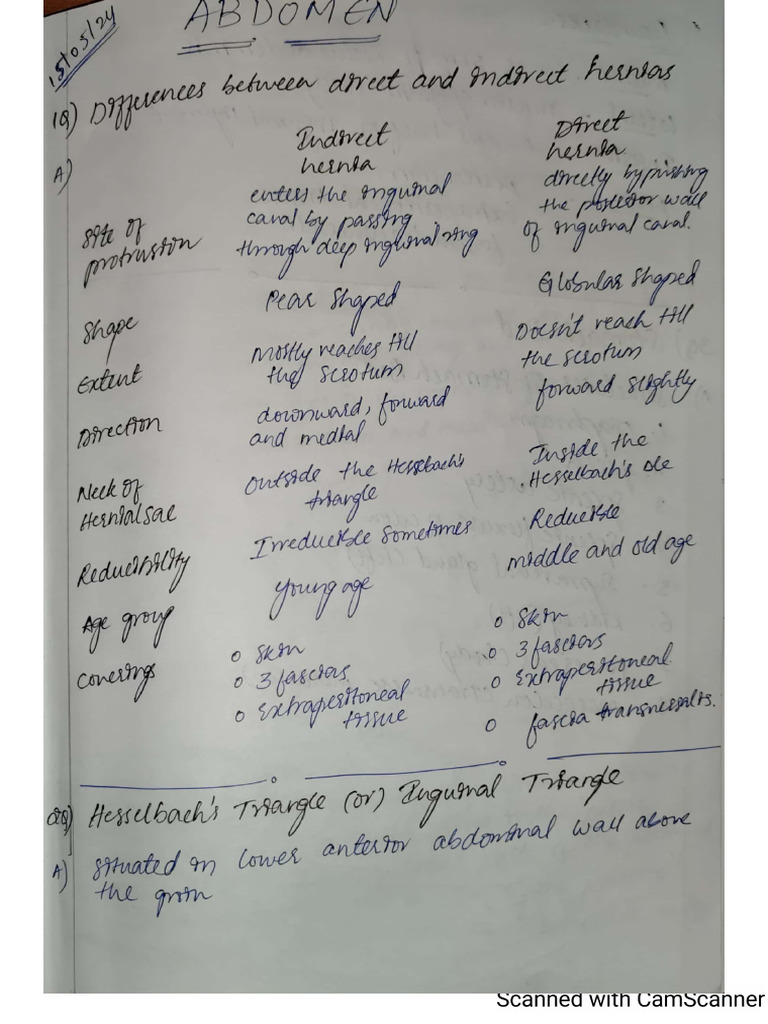 15/05/24
ABDOMEN
1Q) Differences between direct and indirect hernias
A)
Indirect hernia
Direct hernia
Site of protrusion
enters the inguinal canal by passing through deep inguinal ring
directly by pushing the posterior wall of inguinal canal.
Shape
Pear shaped
Globular shaped
Extent
Mostly reaches till the scrotum
Doesn't reach till the scrotum
Direction
downward, forward and medial
forward slightly
Neck of Hernial sac
Outside the Hesselbach's triangle
Inside the Hesselbach's
Reducibility
Irreducible sometimes
Reducible
Age group
young age
middle and old age
Coverings
o Skin
o 3 fascias
o Extraperitoneal tissue
o Skin
o 3 fascias
o Extraperitoneal tissue
o fascia
2Q) Hesselbach's Triangle (or) Inguinal Triangle
A) situated in lower anterior abdominal wall above
the groin
Scanned with CamScanner